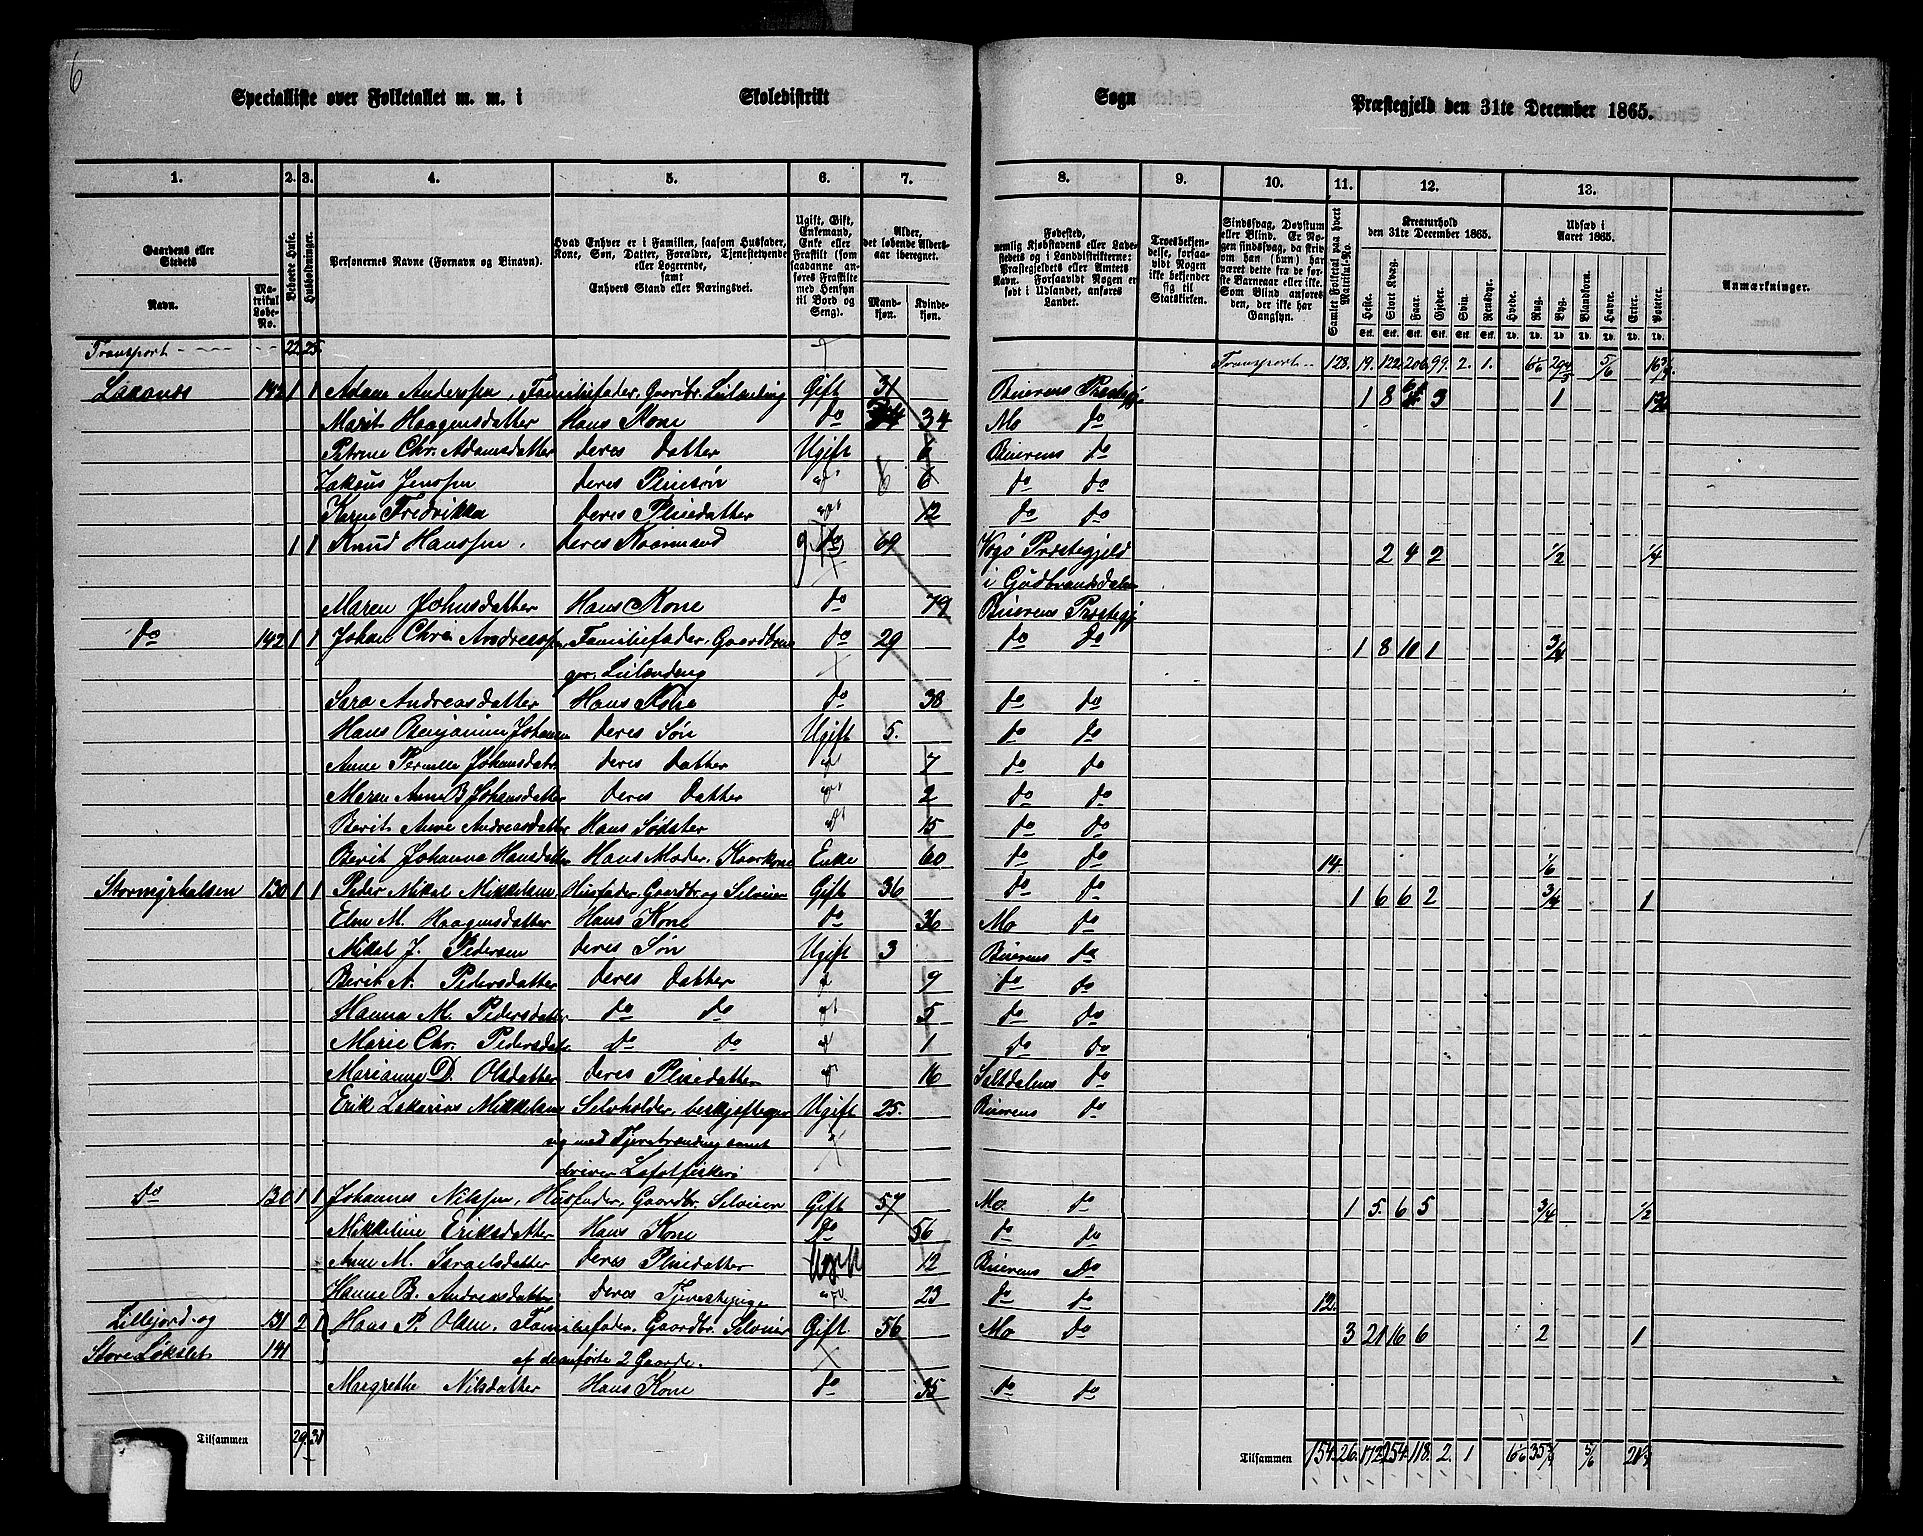 6
Specialliste over Folketallet m. m. i Skoledistrikt Sogn Præstegjeld den 31te December 1865.
1. 2. 3. 4. 5. 6. 7. 8. 9. 10. 11. 12. 13.
Gaardens eller Stedets
Navn.
Matrikul Løbe-No.
Beboede Huse.
Husholdninger.
Personernes Navne (Fornavn og Binavn).
Hvad Enhver er i Familien, saasom Husfader, Kone, Søn, Datter, Forældre, Tjenestetyende eller Logerende, samt Enhvers Stand eller Næringsvei.
Ugift, Gift, Enkemand, Enke eller Fraskilt (som saadanne anføres Fraskilte med Hensyn til Bord og Seng).
Alder, det løbende Aldersaar iberegnet.
Mandkjøn.
Kvindekjøn.
Fødested, nemlig Kjøbstadens eller Ladestedets og i Landdistrikterne: Præstegjeldets eller Amtets Navn. Forsaavidt Nogen er født i Udlandet, anføres Landet.
Troesbekjendelse, forsaavidt Nogen ikke bekjender sig til Statskirken.
Sindssvag, Døvstum eller Blind. Er Nogen sindssvag, da skrives om han (hun) har været dette fra de første Barneaar eller ikke. Som Blind anføres den, der ikke har Gangsyn.
Samlet Folketal paa hvert Matrikul-No.
Kreaturhold den 31te December 1865.
Heste. Stort Kvæg. Faar. Gjeder. Svin. Rensdyr.
Udsæd i Aaret 1865.
Hvede. Rug. Byg. Blandkorn. Havre. Erter. Poteter.
Anmærkninger.
Transport 22 25 Transport 128. 19. 122 206 99. 2. 1.
142 1 1 Adam Anderssen, Familiefader, Gaardbr. Leilænding Gift 31 Beierens Præstegj. 1 8 3 1
Marit Haagensdatter Hans Kone do 34 Mo do
Petrine Chr. Adamsdatter deres Datter Ugift 6 Beierens do
Zakeus Jenssen deres Pleiesøn 6 do do
Karen Fredrikka deres Pleiedatter 12 do do
1 1 Knud Hanssen, deres Kaarmand do 69 Vogö Præstegjeld 2 4 2 1/2 1/4
i Gudbrandsdalen
Maren Johnsdatter Hans Kone do 79 Beierens Præstegj
do 142 1 1 Johan Chr. Andreassen Familiefader, Gaardbru do 29 do do 1 8 10 1 3/4
ger, Leilænding
Sara Andreasdatter Hans Kone do 38 do do
Hans Benjamin Johansen deres Søn Ugift 5. do do
Anne Pernille Johansdatr deres Datter 7 do do
Maren Anne B Johansdatter deres Datter 2 do do
Berit Anne Andreasdatter Hans Sødster 15 do do
Berit Johanna Hansdatter Hans Moder, Kaarkone Enke 60 do do 14. 1/6
Stormyrhalsen 130 1 1 Peder Mikal Mikkelsen Husfader, Gaardbr. og Selveier Gift 36 do do 1 6 6 2 3/4 1
Elen M. Haagensdatter Hans Kone do 36 Mo do
Mikal J. Pedersen deres Søn Ugift 3 Beierens do
Berit A. Pedersdatter deres Datter 9 do do
Hanna M. Pedersdatter do do 5 do do
Marie Chr. Pedersdatr do do 1 do do
Marianne D. Olsdatter deres Pleiedatter 16 Saltdalens do
Erik Zakarias Mikkelsen Selvholder, beskjæftiger Ugift 25. Beierens do
sig med Tjærebrænding samt
driver Lofotfiskeri
do 130 1 1 Johannes Nilssen, Husfader, Gaardbr. Selveier Gift 57 Mo do 1 5. 6 5 3/4 1/2
Mikkeline Eriksdatter Hans Kone do 56 do do
Anne M. Israelsdatter deres Pleiedatter Ugift 12 Beierens do
Hanne B. Andreasdatter deres Tjenestepige 23 do do 12.
Lillejord og 131 2 1 Hans P. Olsen, Familiefader, Gaardbr. Selveier Gift 56 Mo do 3 21 16 6 2 1
141 af de anførte 2 Gaarde.
Margrethe Nilsdatter Hans Kone do 35 do do
Tilsammen 29. 31 Tilsammen 154. 26. 172 254 118. 2. 1